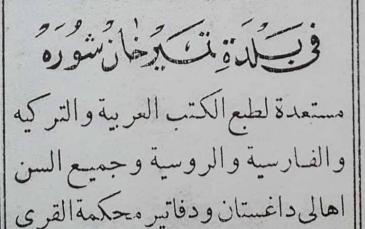 فِي بَلْدَةِ تَمِيرْخَانْ شُورَهْ
مستعدة لطبع الكتب العربية والتركيه
والفارسية والروسية وجميع السن
اهالى داغستان ودفاتير محكمة القرى